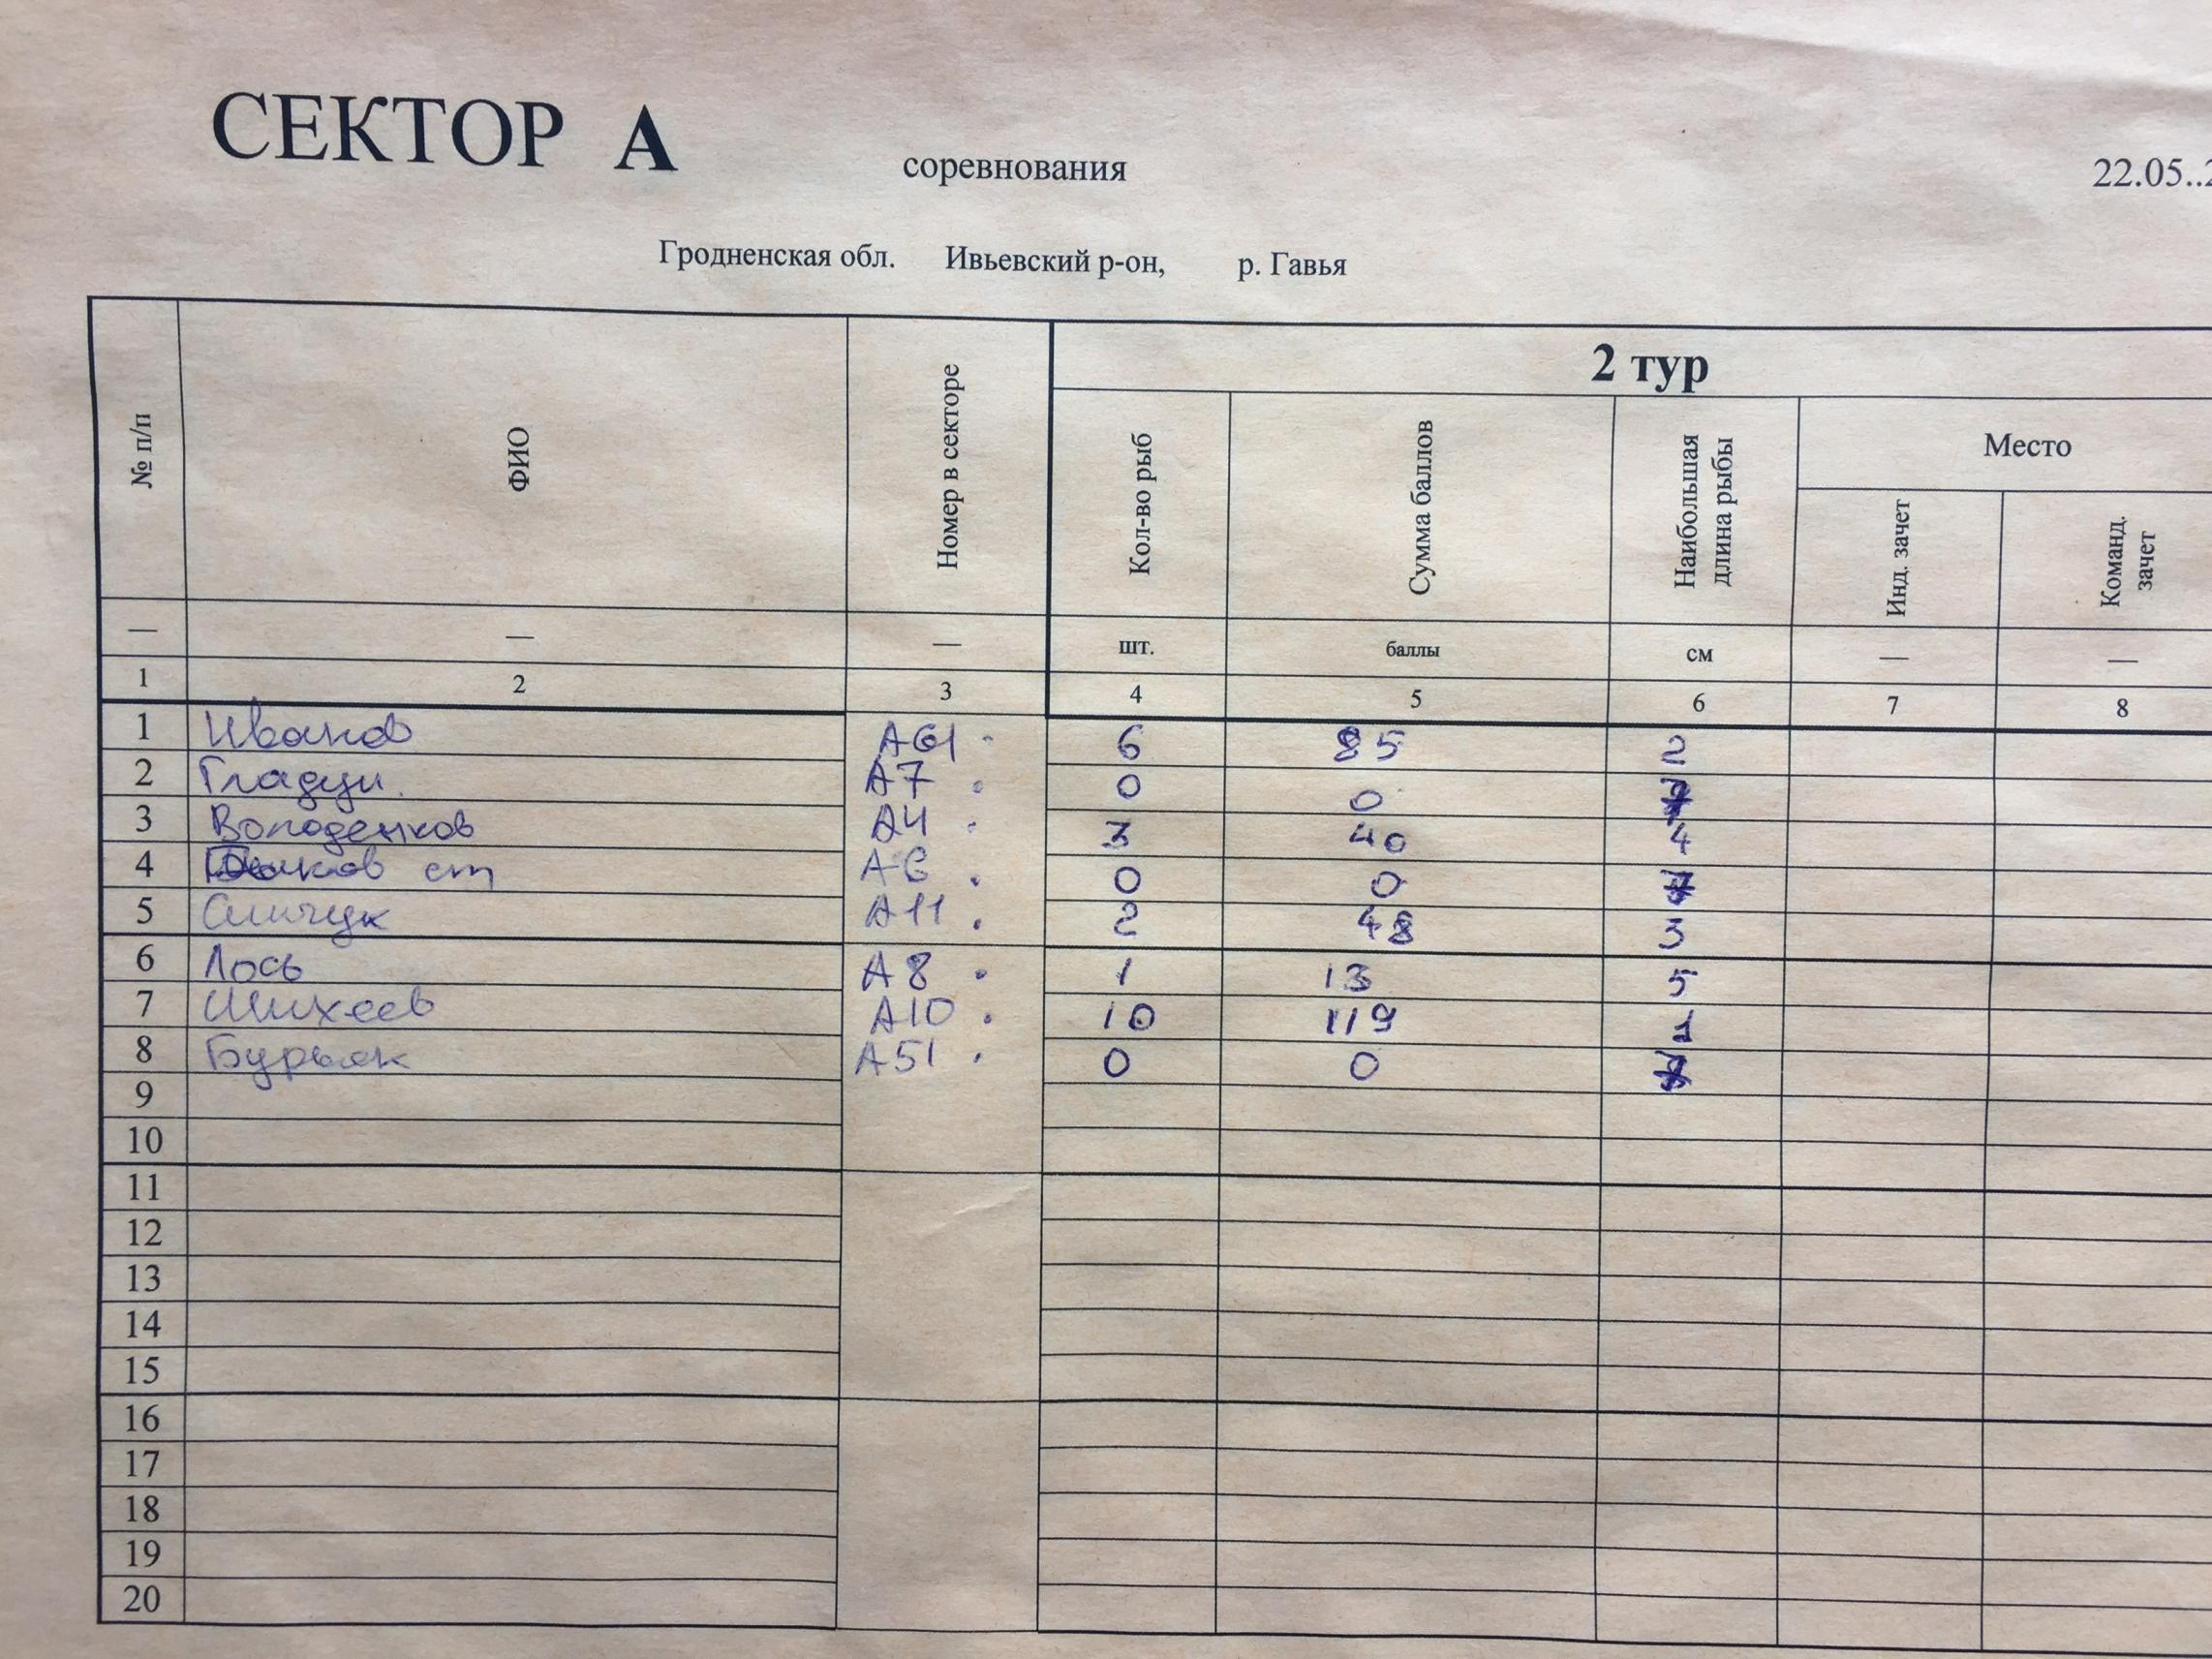 СЕКТОР А
соревнования
22.05..2
Гродненская обл. Ивьевский р-он, р. Гавья
№ п/п ФИО Номер в секторе 2 тур
Кол-во рыб Сумма баллов Наибольшая длина рыбы Место
Инд. зачет Команд. зачет
— — — шт. баллы см — —
1 2 3 4 5 6 7 8
1 Иванов 6 85 2
2 А7 0 0
3 Володенков А4 3 40 4
4 ст А6 0 0
5 Синчук А11 2 48 3
6 Лось А8 1 13 5
7 Шихеев А10 10 119 1
8 Бурьяк А51 0 0
9
10
11
12
13
14
15
16
17
18
19
20